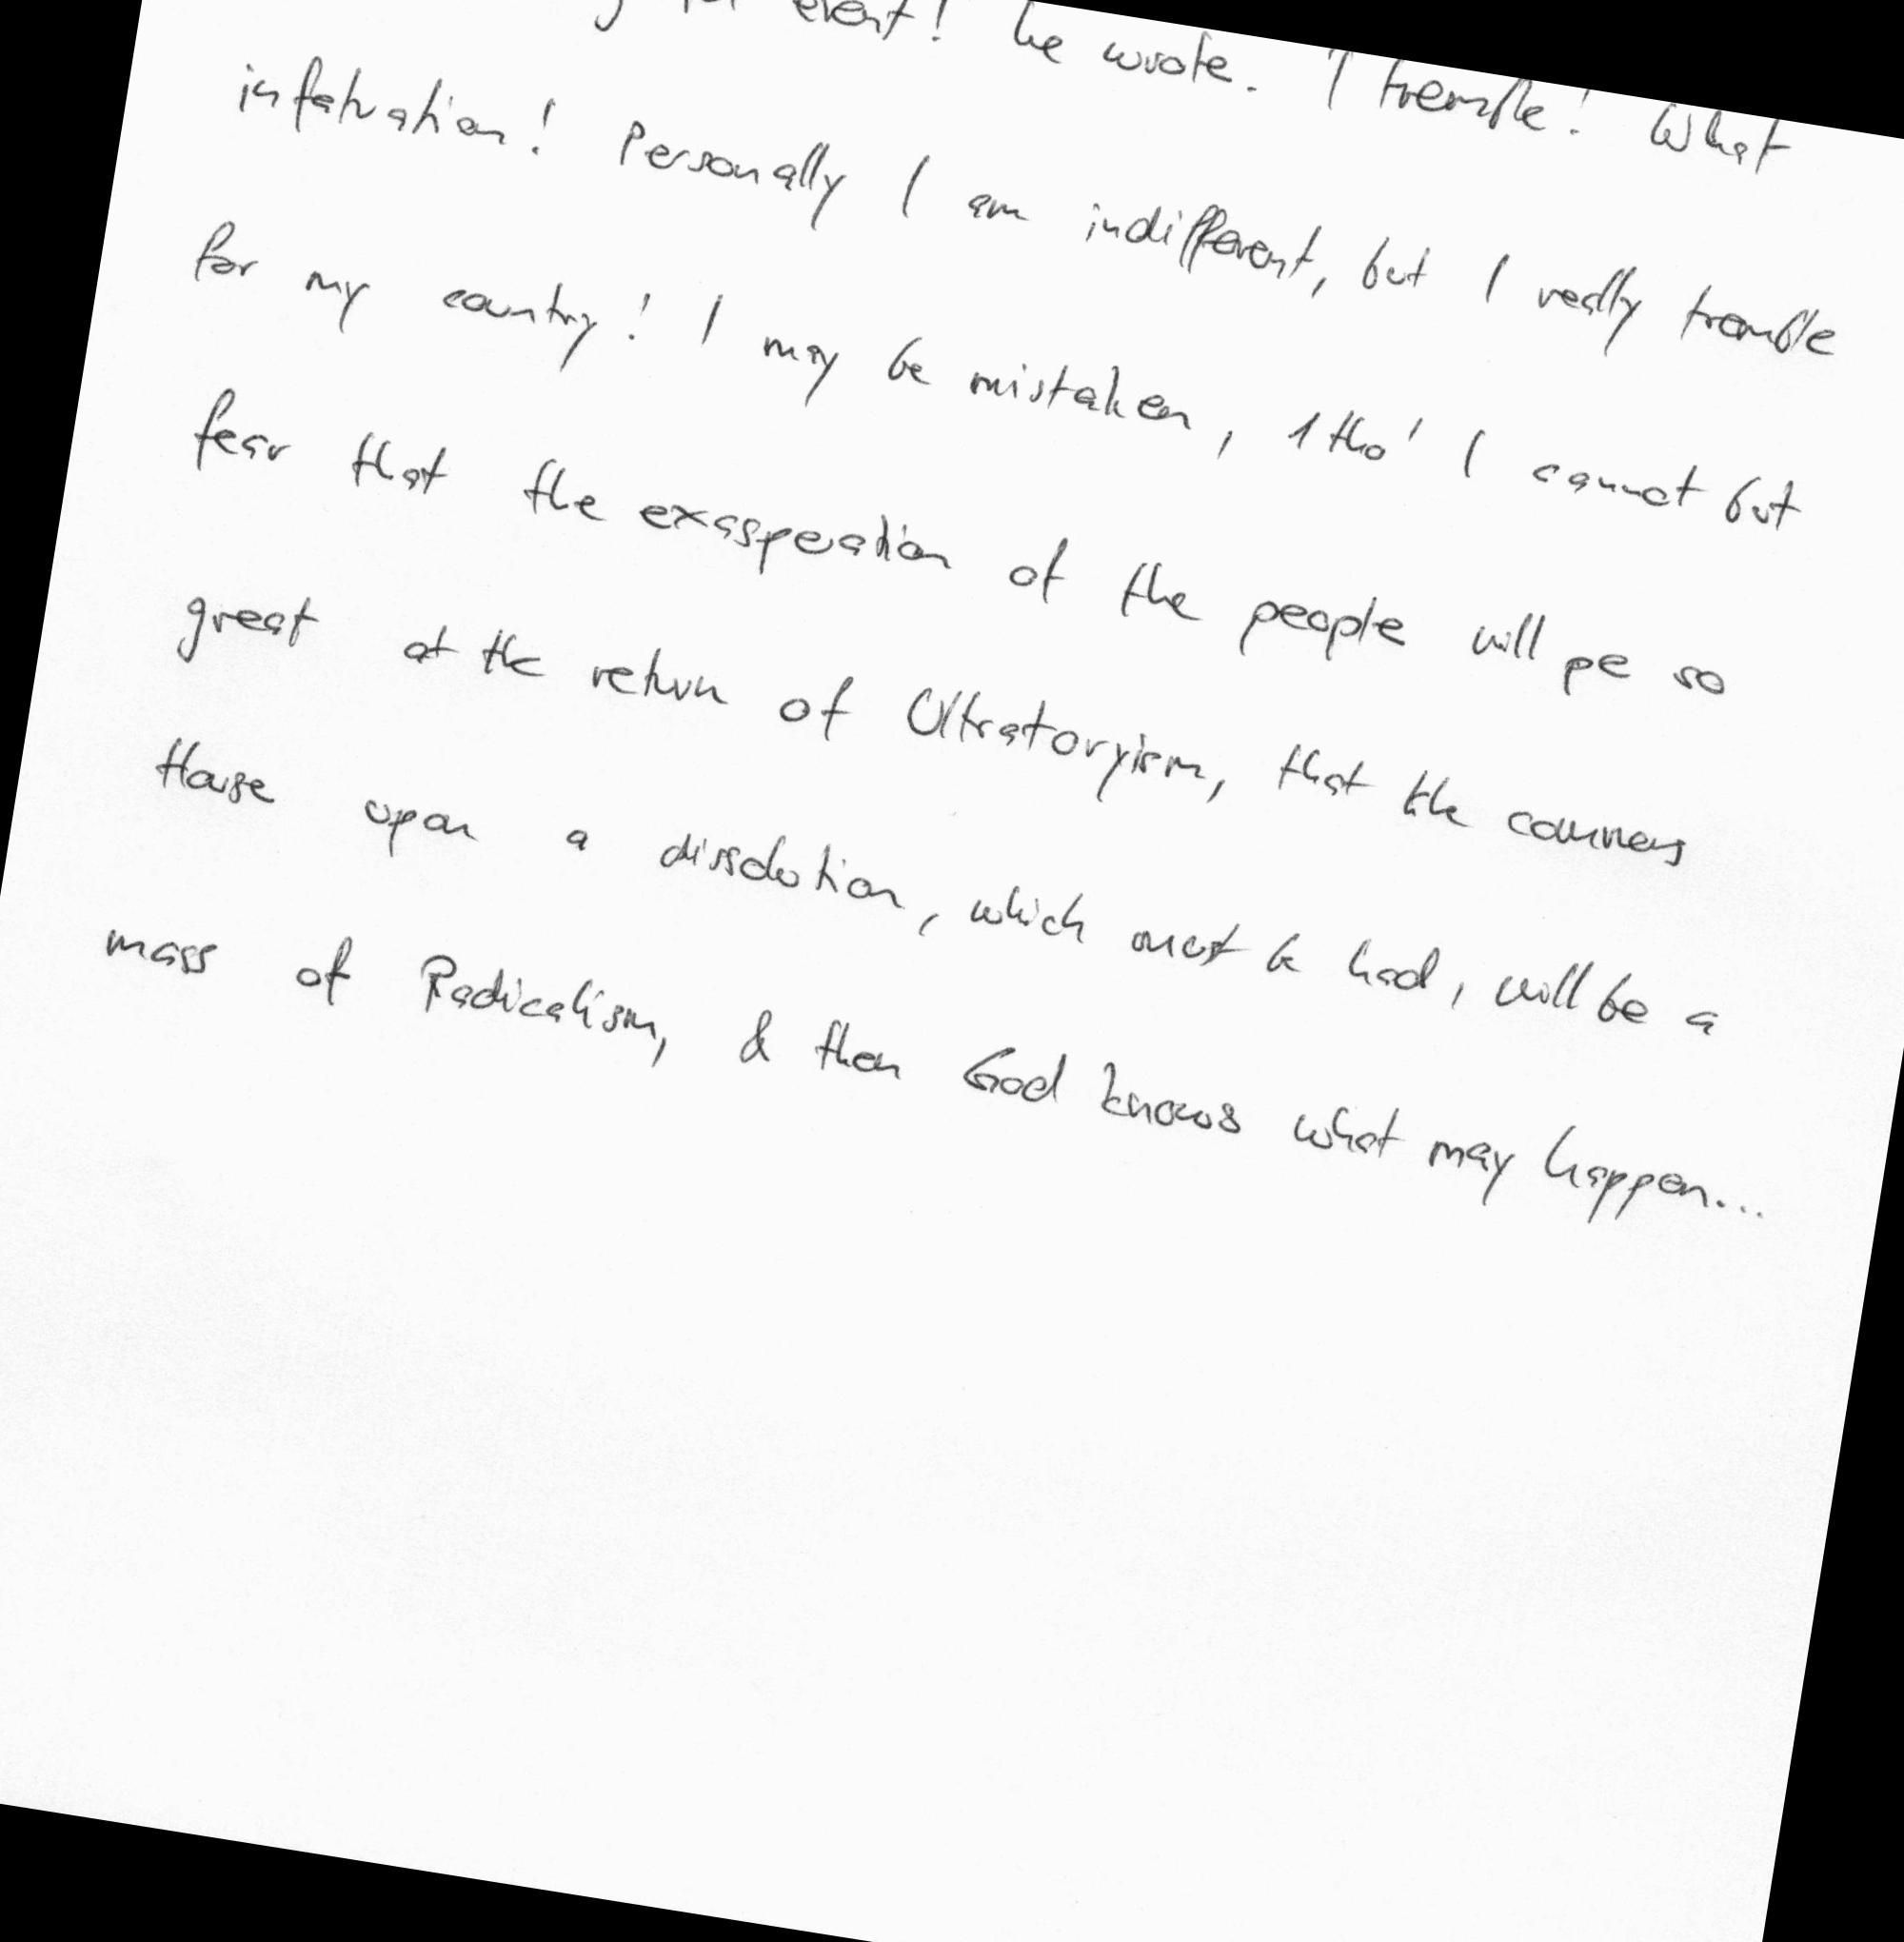 event! he wrote. I tremble! What
infatuation! Personally I am indifferent, but I really tremble
for my country! I may be mistaken, 1tho' I cannot but
fear that the exasperation of the people will pe so
great at the return of Ultratoryism, that the
House upon a dissolution, which must be had, will be a
mass of Radicalism, & then God knows what may happen...